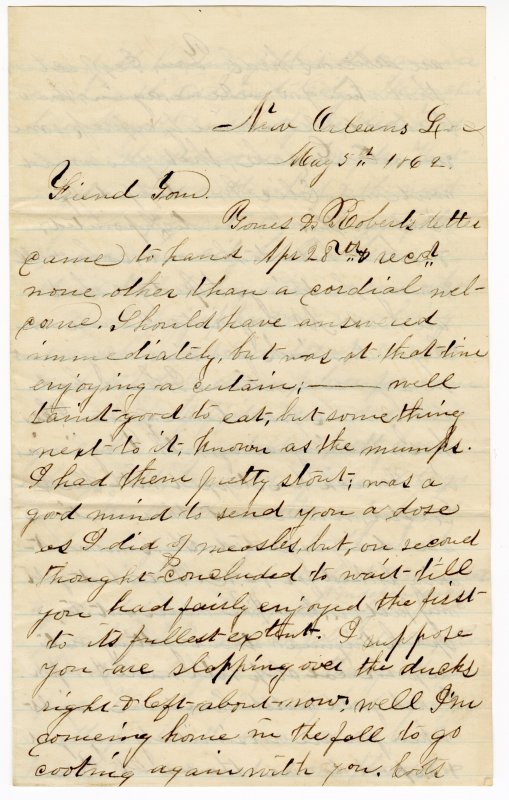 New Orleans La
May 5th 1862.
Friend Tom.
Yours & Roberts letter
came to hand Apr 28th & recd
none other than a cordial wel-
come. Should have answered
immediately, but was at that time
enjoying a certain; —— well
taint good to eat, but something
next to it, known as the mumps.
I had them pretty stout; was a
good mind to send you a dose
as I did of measles, but, on second
thought concluded to wait till
you had fairly enjoyed the first
to its fullest extent. I suppose
you are slapping over the ducks
right & left about now; well I'm
comeing home in the fall to go
cooting again with you.